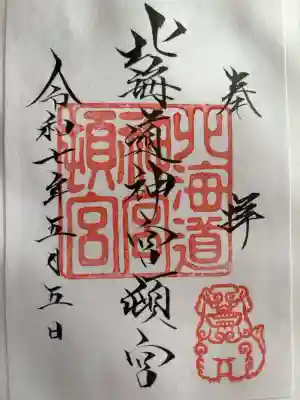 奉拝
北海道神宮頓宮
北海道
神宮
頓宮
令和七年五月五日